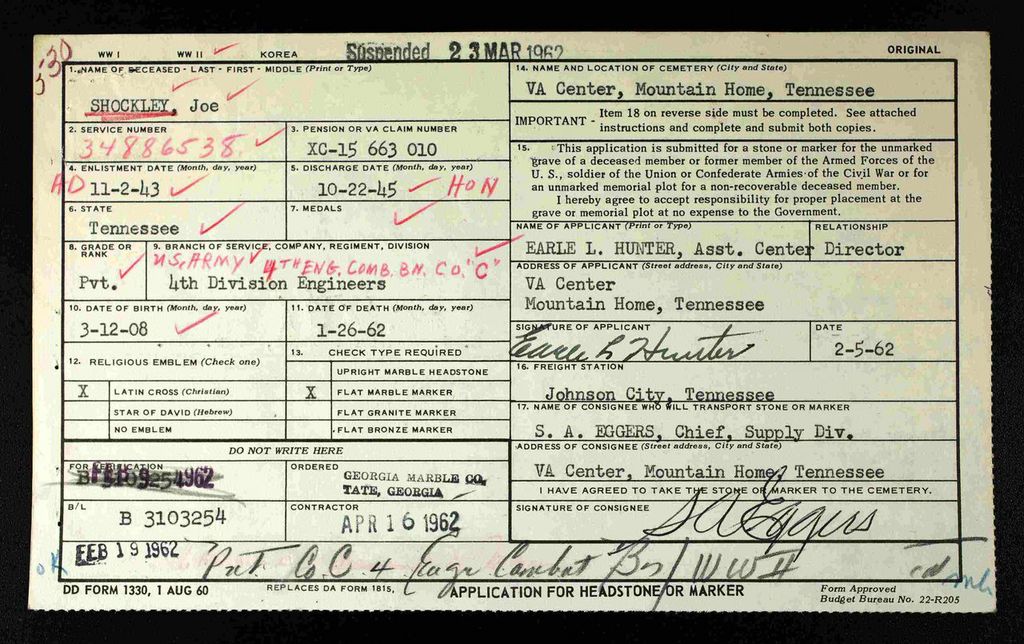 WW I WW II ✓ KOREA Suspended 23 MAR 1962 ORIGINAL
5-30
1. NAME OF DECEASED - LAST - FIRST - MIDDLE (Print or Type)
SHOCKLEY, Joe
2. SERVICE NUMBER
34886538
3. PENSION OR VA CLAIM NUMBER
XC-15 663 010
4. ENLISTMENT DATE (Month, day, year)
AD 11-2-43
5. DISCHARGE DATE (Month, day, year)
10-22-45 HON
6. STATE
Tennessee
7. MEDALS
8. GRADE OR RANK
Pvt.
9. BRANCH OF SERVICE, COMPANY, REGIMENT, DIVISION
U.S. ARMY 4TH ENG. COMB. BN. CO. "C"
4th Division Engineers
10. DATE OF BIRTH (Month, day, year)
3-12-08
11. DATE OF DEATH (Month, day, year)
1-26-62
12. RELIGIOUS EMBLEM (Check one)
X LATIN CROSS (Christian)
STAR OF DAVID (Hebrew)
NO EMBLEM
13. CHECK TYPE REQUIRED
UPRIGHT MARBLE HEADSTONE
X FLAT MARBLE MARKER
FLAT GRANITE MARKER
FLAT BRONZE MARKER
DO NOT WRITE HERE
FOR VERIFICATION
FEB 9 1962
ORDERED
GEORGIA MARBLE CO,
TATE, GEORGIA
B/L
B 3103254
CONTRACTOR
APR 16 1962
FEB 19 1962
14. NAME AND LOCATION OF CEMETERY (City and State)
VA Center, Mountain Home, Tennessee
IMPORTANT - Item 18 on reverse side must be completed. See attached
instructions and complete and submit both copies.
15. This application is submitted for a stone or marker for the unmarked
grave of a deceased member or former member of the Armed Forces of the
U. S., soldier of the Union or Confederate Armies of the Civil War or for
an unmarked memorial plot for a non-recoverable deceased member.
I hereby agree to accept responsibility for proper placement at the
grave or memorial plot at no expense to the Government.
NAME OF APPLICANT (Print or Type) RELATIONSHIP
EARLE L. HUNTER, Asst. Center Director
ADDRESS OF APPLICANT (Street address, City and State)
VA Center
Mountain Home, Tennessee
SIGNATURE OF APPLICANT DATE
Earle L Hunter 2-5-62
16. FREIGHT STATION
Johnson City, Tennessee
17. NAME OF CONSIGNEE WHO WILL TRANSPORT STONE OR MARKER
S. A. EGGERS, Chief, Supply Div.
ADDRESS OF CONSIGNEE (Street address, City and State)
VA Center, Mountain Home, Tennessee
I HAVE AGREED TO TAKE THE STONE OR MARKER TO THE CEMETERY.
SIGNATURE OF CONSIGNEE
S A Eggers
OK Pvt Co C 4 Engr Combat Bn / WW II
DD FORM 1330, 1 AUG 60 REPLACES DA FORM 1815, APPLICATION FOR HEADSTONE OR MARKER
Form Approved
Budget Bureau No. 22-R205